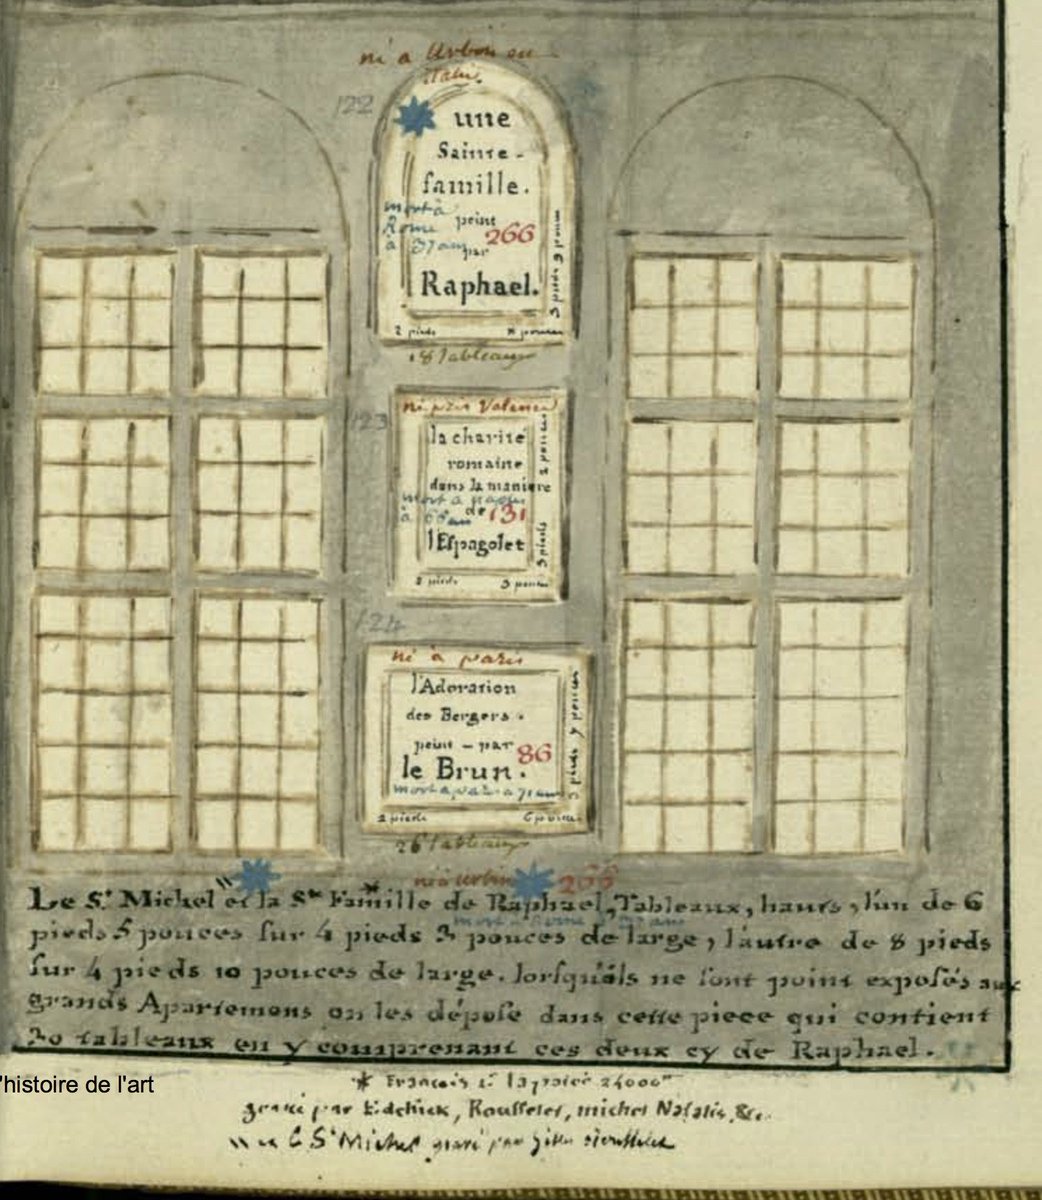 né à Urbin en
italie.
122
une
Sainte-
famille.
mort à
Rome
à 37 ans
peint
par
266
Raphael.
3 pieds 9 pouces
2 pieds 8 pouces
18 tableaux
né près Valence
123
la charité
romaine
dans la maniere
mort a naples
de 131
l'Espagolet
3 pieds 2 pouces
2 pieds 3 pouces
124
né à paris
l'Adoration
des Bergers.
peint - par 86
le Brun.
mort a paris a 71 ans
3 pieds 7 pouces
2 pieds 6 pouces
26 tableaux
né à Urbin 266
Le St. Michel" et la Ste * Famille de Raphael, Tableaux, hauts, l'un de 6
pieds 5 pouces sur 4 pieds 3 pouces de large, l'autre de 8 pieds
sur 4 pieds 10 pouces de large. lorsquils ne sont point exposés aux
grands Apartemens on les dépose dans cette piece qui contient
30 tableaux en y comprenant ces deux cy de Raphael.
l'histoire de l'art
* Francois 1er la paié 24000
gravé par Edelinck, Rousselet, michel Natalis, &c.
" le St Michel gravé par gilles rousselet